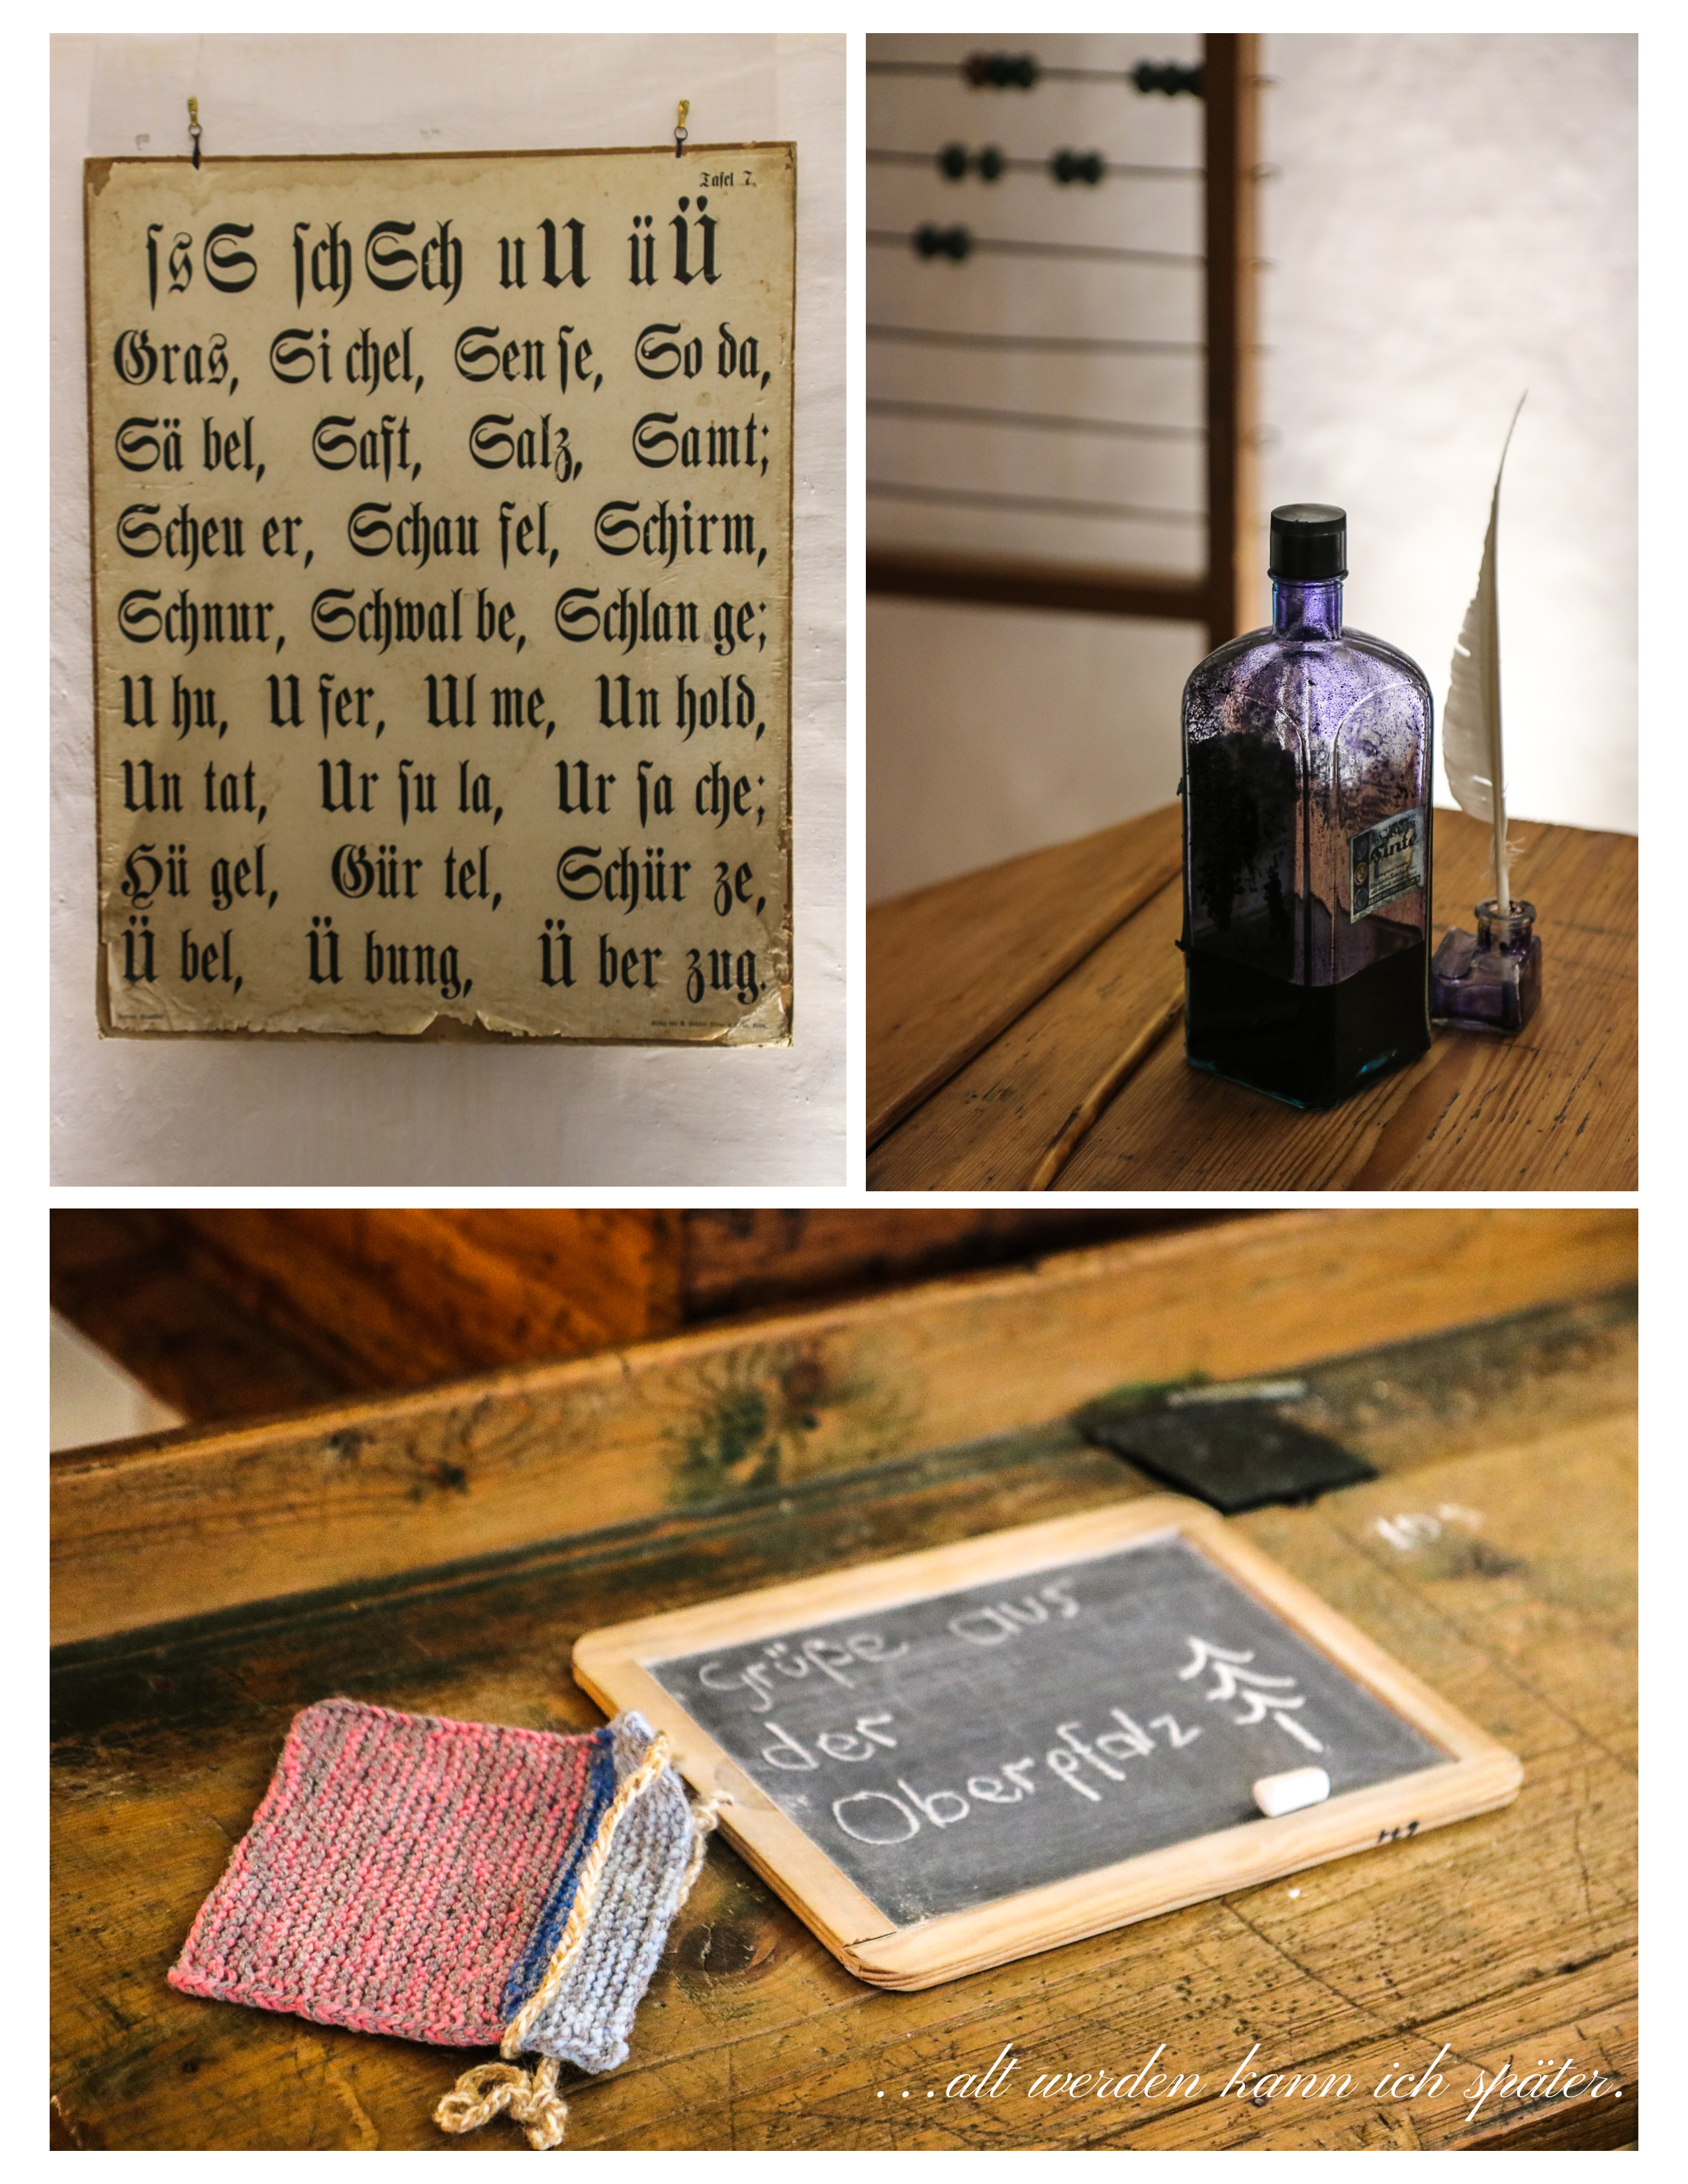 Tafel 7.
ſsS ſchSch uU üÜ
Gras, Si chel, Sen ſe, So da,
Sä bel, Saft, Salz, Samt;
Scheu er, Schau fel, Schirm,
Schnur, Schwal be, Schlan ge;
U hu, U fer, Ul me, Un hold,
Un tat, Ur ſu la, Ur ſa che;
Hü gel, Gür tel, Schür ze,
Ü bel, Ü bung, Ü ber zug.
Tinte
Grüße aus
der
Oberpfalz
...alt werden kann ich später.